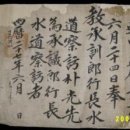 六月二十四日奉
教承訓郎行長水
道察訪朴光先
爲承議郎行長
水道察訪者
曆 十一年六月
200